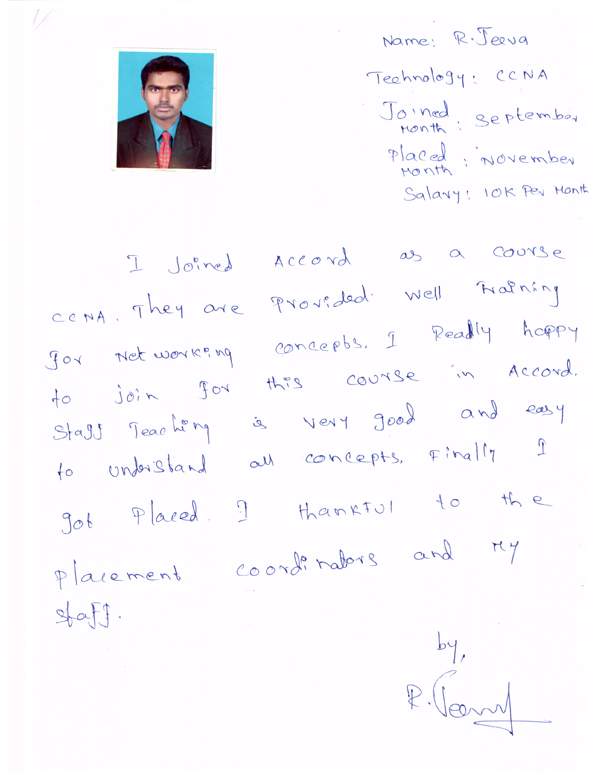 Name: R. Jeeva
Technology: CCNA
Joined Month: September
Placed Month: November
Salary: 10K Per Month
I Joined Accord as a course
CCNA. They are Provided well training
for Networking concepts. I Really happy
to join for this course in Accord.
Staff Teaching is very good and easy
to understand all concepts. Finally I
got Placed. I thankful to the
placement coordinators and My
staff.
by,
R. Jeeva